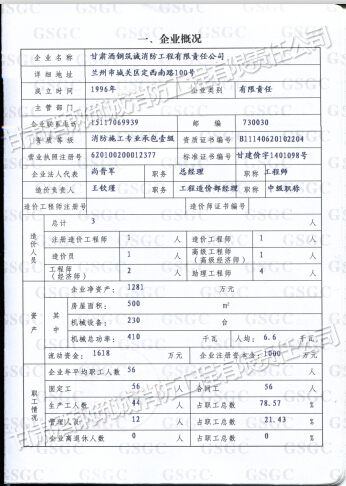 一、企业概况
企业名称 甘肃酒钢筑诚消防工程有限责任公司
详细地址 兰州市城关区定西南路100号
成立时间 1996年 企业类别 有限责任
主管部门
企业联系电话 15117069939 邮编 730030
资质等级 消防施工专业承包壹级 资质证书编号 B11140620102204
营业执照注册号 620100200012377 标准证书编号 甘建价字1401098号
企业法人代表 尚晋军 职务 总经理 职称 工程师
造价负责人 王钦瑾 职务 工程造价部经理 职称 中级职称
造价工程师注册号 造价师证书编号
造价人员
总计 3 人
注册造价工程师 1 人 造价工程师 1 人
造价员 1 人 高级工程师(高级经济师) 1 人
工程师(经济师) 2 人 助理工程师 4 人
资产
企业净资产: 1281 万元
其中
房屋面积: 500 m²
机械设备: 230 台
机械总功率: 410 千瓦 人均: 6.6 千瓦
流动资金: 1618 万元 企业注册资本金: 1000 万元
职工情况
企业年平均职工人数 56 人
固定工 56 人 合同工 56 人
生产工人数 44 人 占职工总数 78.57 %
管理人员 12 人 占职工总数 21.43 %
企业离退休人数 0 人 占职工总数 0 %
甘肃酒钢筑诚消防工程有限责任公司
甘肃酒钢筑诚消防工程有限责任公司
GSGC